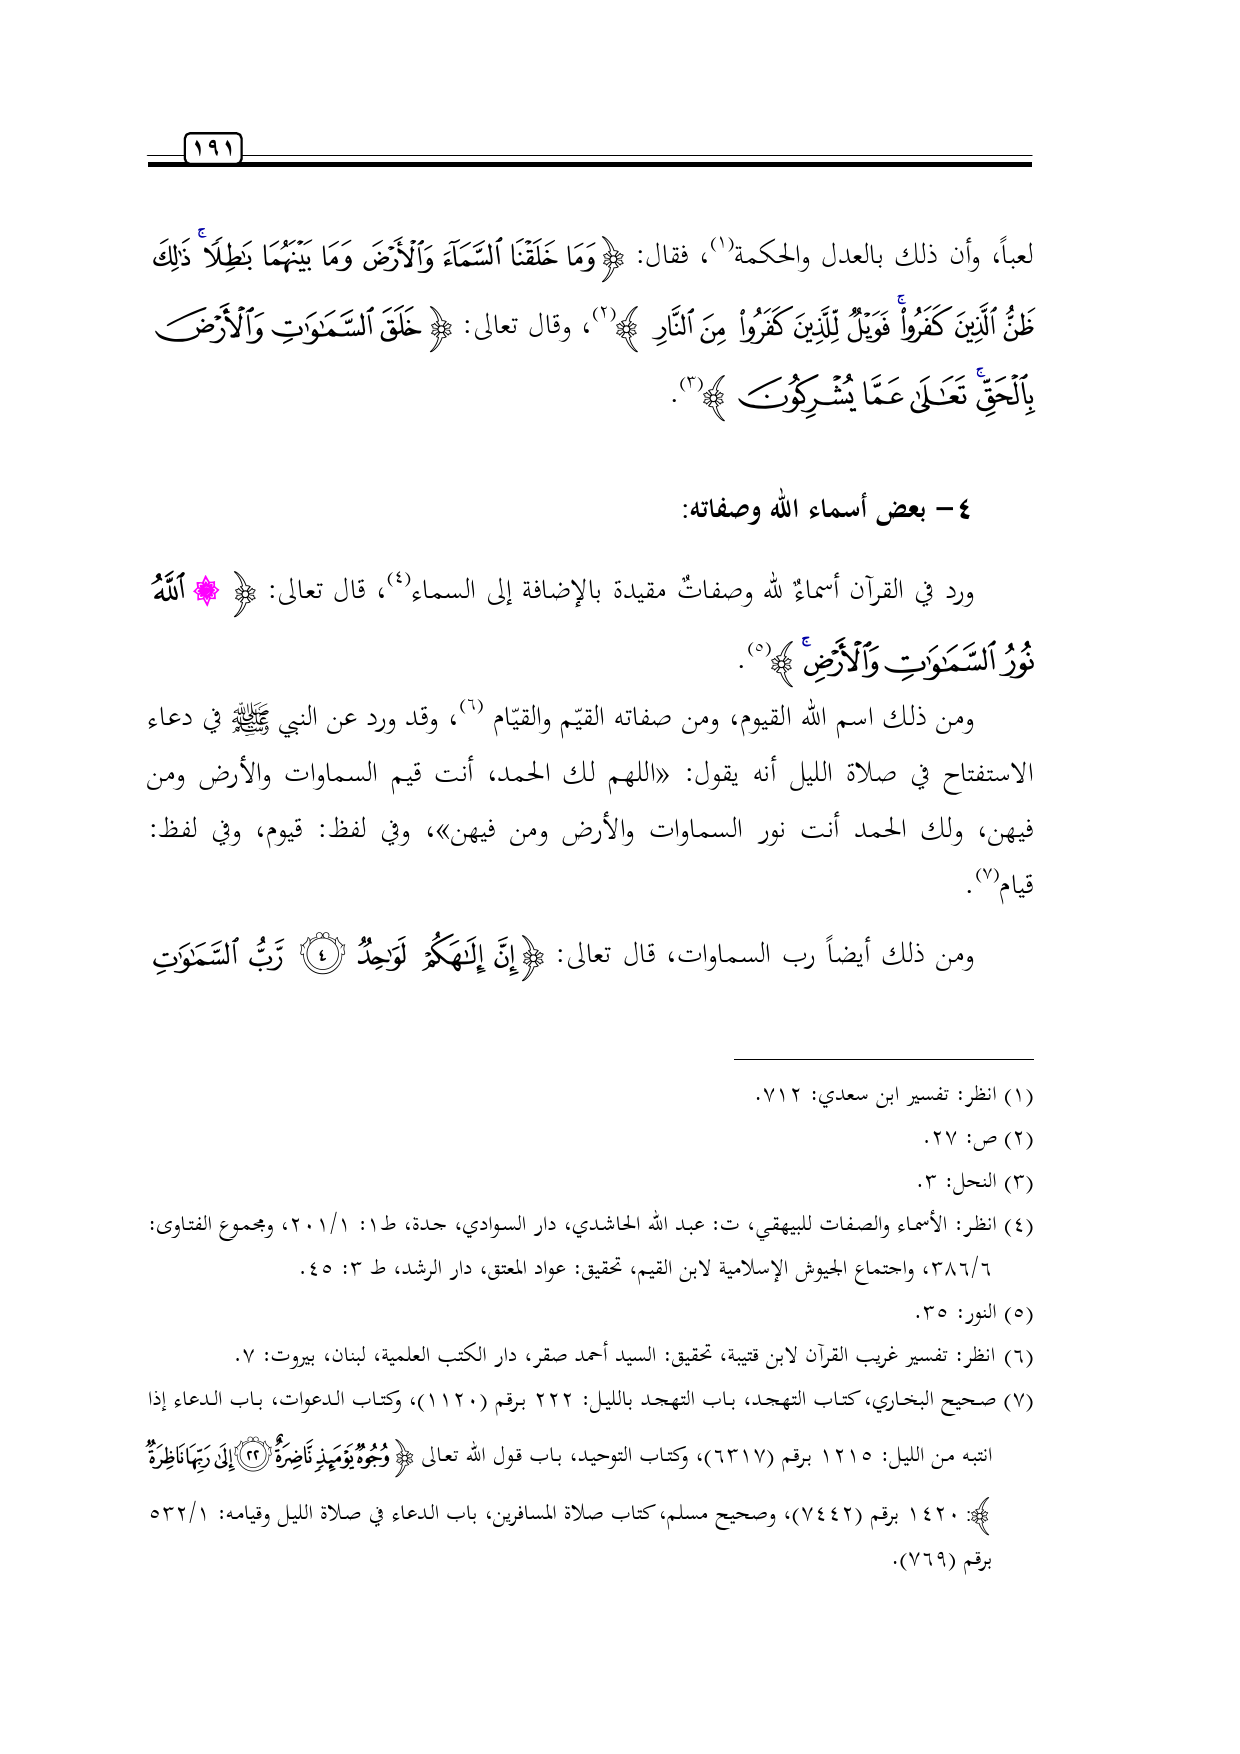 ١٩١
لعباً، وأن ذلك بالعدل والحكمة(١)، فقال: ﴿وَمَا خَلَقْنَا ٱلسَّمَآءَ وَٱلْأَرْضَ وَمَا بَيْنَهُمَا بَٰطِلًا ۚ ذَٰلِكَ
ظَنُّ ٱلَّذِينَ كَفَرُوا۟ ۚ فَوَيْلٌ لِّلَّذِينَ كَفَرُوا۟ مِنَ ٱلنَّارِ ﴾(٢)، وقال تعالى: ﴿ خَلَقَ ٱلسَّمَٰوَٰتِ وَٱلْأَرْضَ
بِٱلْحَقِّ ۚ تَعَٰلَىٰ عَمَّا يُشْرِكُونَ ﴾(٣).
٤ – بعض أسماء الله وصفاته:
ورد في القرآن أسماءٌ لله وصفاتٌ مقيدة بالإضافة إلى السماء(٤)، قال تعالى: ﴿ ۞ ٱللَّهُ
نُورُ ٱلسَّمَٰوَٰتِ وَٱلْأَرْضِ ۚ ﴾(٥).
ومن ذلك اسم الله القيوم، ومن صفاته القيّم والقيّام (٦)، وقد ورد عن النبي ﷺ في دعاء
الاستفتاح في صلاة الليل أنه يقول: «اللهم لك الحمد، أنت قيم السماوات والأرض ومن
فيهن، ولك الحمد أنت نور السماوات والأرض ومن فيهن»، وفي لفظ: قيوم، وفي لفظ:
قيام(٧).
ومن ذلك أيضاً رب السماوات، قال تعالى: ﴿إِنَّ إِلَٰهَكُمْ لَوَٰحِدٌ ۝٤ رَّبُّ ٱلسَّمَٰوَٰتِ
(١) انظر: تفسير ابن سعدي: ٧١٢.
(٢) ص: ٢٧.
(٣) النحل: ٣.
(٤) انظر: الأسماء والصفات للبيهقي، ت: عبد الله الحاشدي، دار السوادي، جدة، ط١: ٢٠١/١، ومجموع الفتاوى:
٣٨٦/٦، واجتماع الجيوش الإسلامية لابن القيم، تحقيق: عواد المعتق، دار الرشد، ط ٣: ٤٥.
(٥) النور: ٣٥.
(٦) انظر: تفسير غريب القرآن لابن قتيبة، تحقيق: السيد أحمد صقر، دار الكتب العلمية، لبنان، بيروت: ٧.
(٧) صحيح البخاري، كتاب التهجد، باب التهجد بالليل: ٢٢٢ برقم (١١٢٠)، وكتاب الدعوات، باب الدعاء إذا
انتبه من الليل: ١٢١٥ برقم (٦٣١٧)، وكتاب التوحيد، باب قول الله تعالى ﴿ وُجُوهٌ يَوْمَئِذٍ نَّاضِرَةٌ ۝٢٢ إِلَىٰ رَبِّهَا نَاظِرَةٌ
﴾: ١٤٢٠ برقم (٧٤٤٢)، وصحيح مسلم، كتاب صلاة المسافرين، باب الدعاء في صلاة الليل وقيامه: ٥٣٢/١
برقم (٧٦٩).